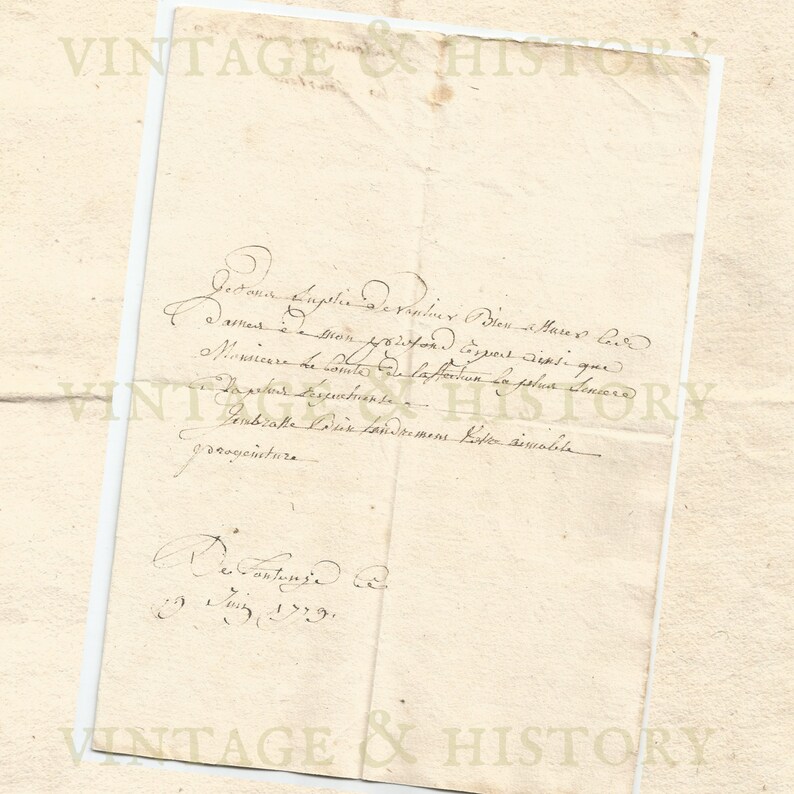 VINTAGE & HISTORY
Je vous suplie de vouloir Bien assurer les
Dames de mon profond respec ainsi que
Monsieur le Comte de l'affection la plus sincere
La plus respectueuse
J'embrasse Bien tandrement votre aimable
progeniture
VINTAGE & HISTORY
De Toulouse Ce
9 Juin 1779.
VINTAGE & HISTORY